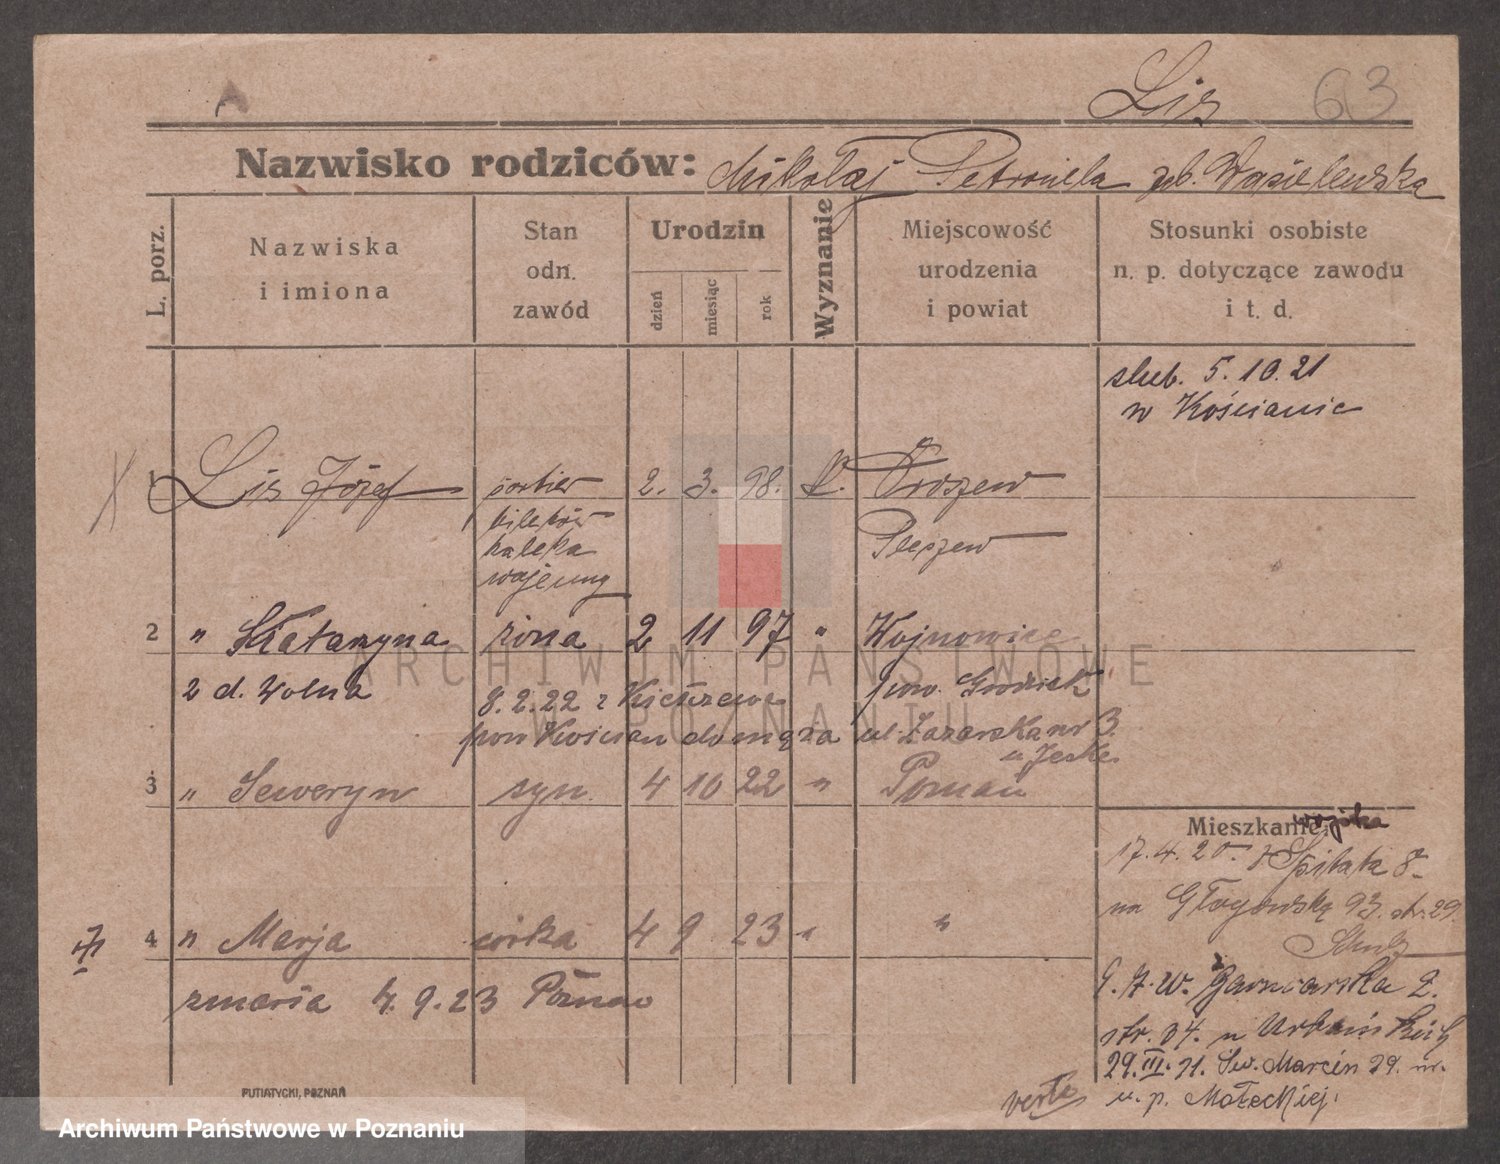 Lis 63
Nazwisko rodziców: Mikołaj Petronela zd. Wasielewska
L. porz.
Nazwiska
i imiona
Stan
odn.
zawód
Urodzin
dzień
miesiąc
rok
Wyznanie
Miejscowość
urodzenia
i powiat
Stosunki osobiste
n. p. dotyczące zawodu
i t. d.
slub. 5.10.21
w Kościanie
1 Lis Józef portier 2. 3. 98. k.
biletów Pleszew
kaleka
wojenny
2 " Katarzyna żona 2 11 97 " Wojnowice
2 d. Wolna pow. Grodzisk
8.2.22 z
pow Kościan do męża ul. Łazarska nr 3.
u Jeske
3 " Seweryn syn. 4 10 22 " Poznań
Mieszkanie:
wojska
17.4.20. Szpitala 8
na Głogowską 93. str. 29.
4 " Marja córka 4 9 23 " "
zmarła 4.9.23 Poznań
Garncarska 2.
str. 04. u Urbańskich
29.III.21. Św. Marcin 29.
u. p. Małeckiej.
verte
PUTIATYCKI, POZNAŃ
ARCHIWUM PAŃSTWOWE
W POZNANIU
Archiwum Państwowe w Poznaniu